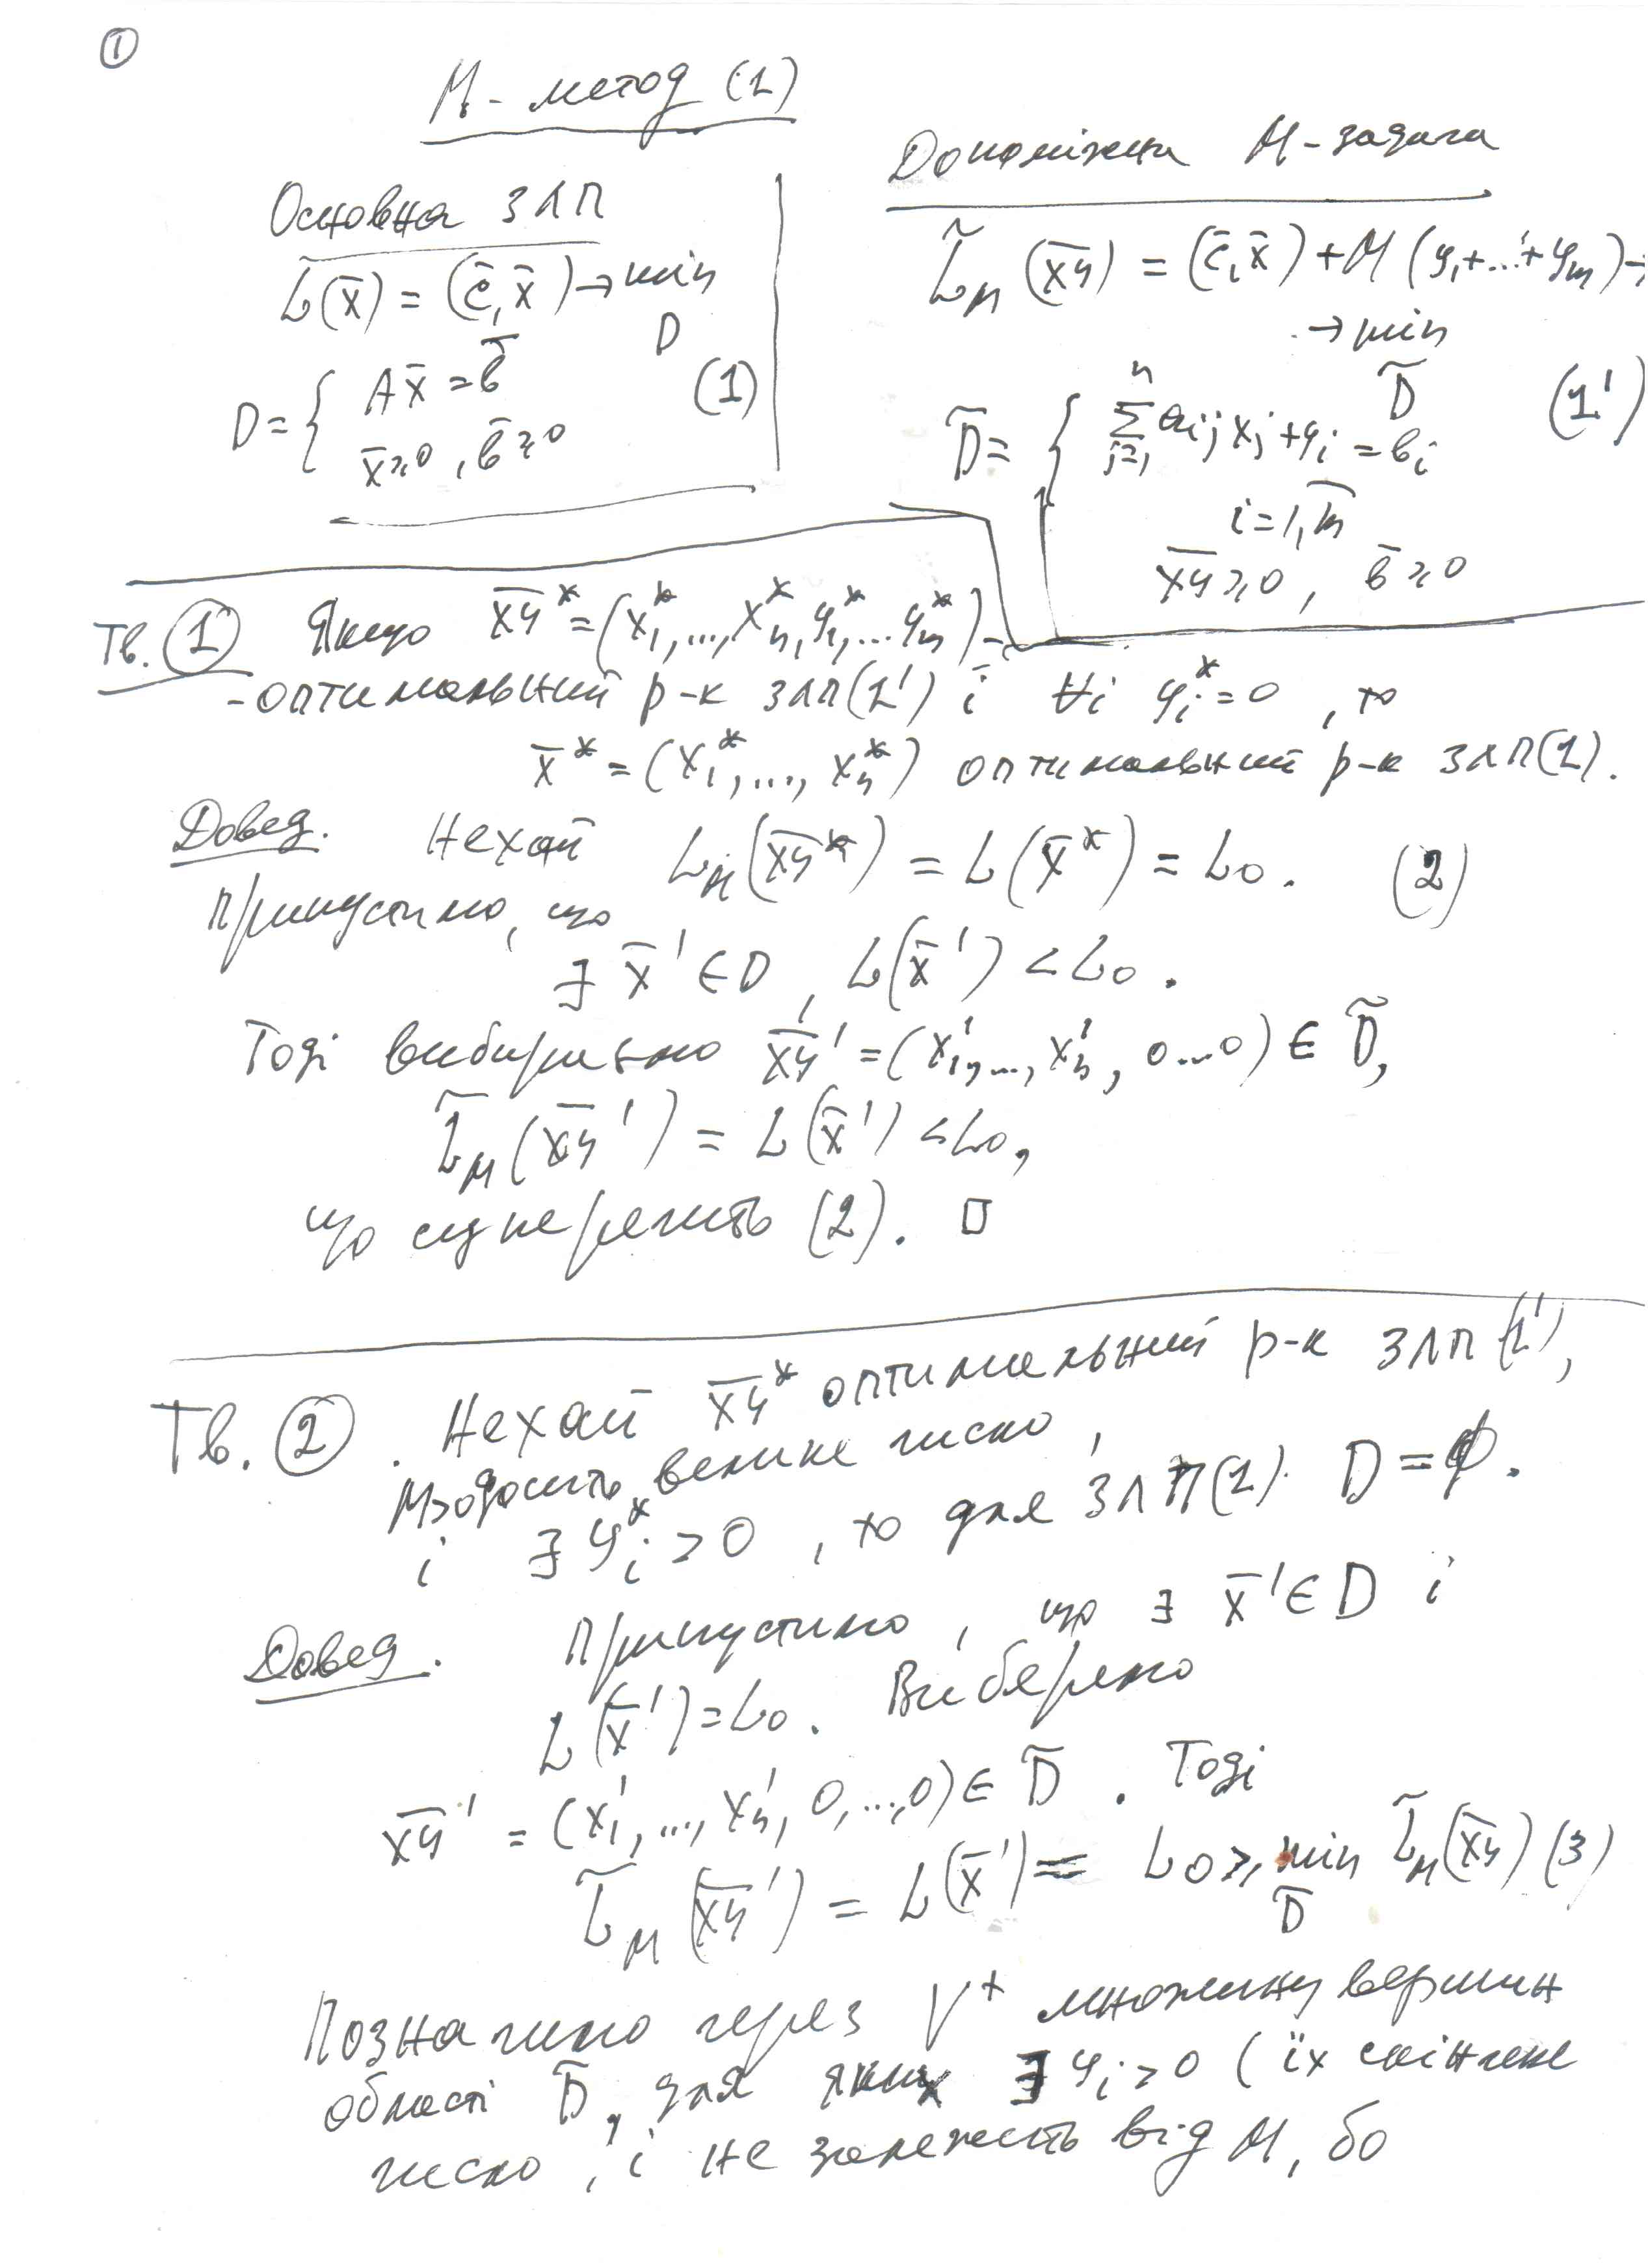 ①
М-метод (1)
Основна ЗЛП
L(x̄) = (c̄, x̄) → min
D
D = { Ax̄ = b̄
x̄ ≥ 0, b̄ ≥ 0
(1)
Допоміжна М-задача
L̃_M (x̄ȳ) = (c̄, x̄) + M (y₁+...+yₘ) →
→ min
D̃
D̃ = { ∑_{j=1}^{n} a_{ij} x_j + y_i = b_i
(1')
i = 1,m̄
x̄ȳ ≥ 0, b̄ ≥ 0
Тв. ① Якщо x̄ȳ* = (x₁*, ..., xₙ*, y₁*, ... yₘ*) –
- оптимальний р-к ЗЛП(1') і ∀i y_i* = 0, то
x̄* = (x₁*, ..., xₙ*) оптимальний р-к ЗЛП(1).
Довед. Нехай L_M(x̄ȳ*) = L(x̄*) = L₀. (2)
Припустимо, що
∃ x̄' ∈ D, L(x̄') < L₀.
Тоді вибираємо x̄ȳ' = (x₁', ..., xₙ', 0...0) ∈ D̃,
L̃_M(x̄ȳ') = L(x̄') < L₀,
що суперечить (2). □
Тв. ② . Нехай x̄ȳ* оптимальний р-к ЗЛП(1'),
M>0 досить велике число,
і ∃ y_i* > 0, то для ЗЛП(1) D = ∅.
Довед. Припустимо, що ∃ x̄' ∈ D і
L(x̄') = L₀. Виберемо
x̄ȳ' = (x₁', ..., xₙ', 0, ..., 0) ∈ D̃. Тоді
L̃_M(x̄ȳ') = L(x̄') = L₀ ≥ min L̃_M(x̄ȳ) (3)
D̃
Позначимо через V⁺ множину вершин
області D̃, для яких ∃ y_i > 0 (їх скінчене
число, і не залежить від М, бо